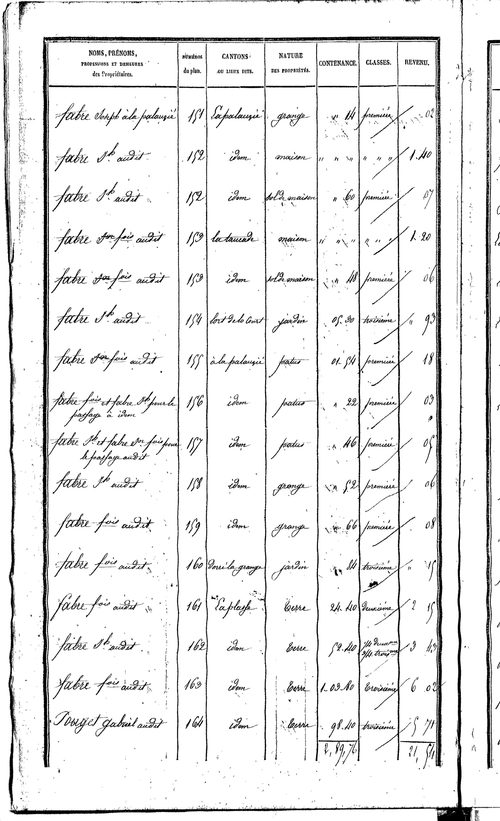 NOMS, PRÉNOMS, PROFESSIONS ET DEMEURES des Propriétaires. NUMÉROS du plan. CANTONS OU LIEUX DITS. NATURE DES PROPRIÉTÉS. CONTENANCE. CLASSES. REVENU.
fabre Joseph à la palauzié 151 La palauzié grange " 14 première 02
fabre Jh audit 152 idem maison " " " " " " 1.40
fabre Jh audit 152 idem sol de maison " 60 première 07
fabre fois audit 153 maison " " " " " " 1.20
fabre fois audit 153 idem sol de maison " 48 première 06
fabre Jh audit 154 jardin 05.30 troisième " 93
fabre fois audit 155 à la palauzié patus 01.54 première 18
fabre fois et fabre Jh pour le passage à idem 156 idem patus " 22 première 03
fabre Jh et fabre fois pour le passage audit 157 idem patus " 46 première 05
fabre Jh audit 158 idem grange " 52 première 06
fabre fois audit 159 idem grange " 66 première 08
fabre fois audit 160 la grange jardin " 84 troisième " 15
fabre fois audit 161 La plasse terre 24.40 deuxième 2 15
fabre Jh audit 162 idem terre 52.40 3 43
fabre fois audit 163 idem terre 1.03.80 troisième 6 02
Pouget Gabriel audit 164 idem terre 98.40 troisième 5 71
2,89,76 21,54